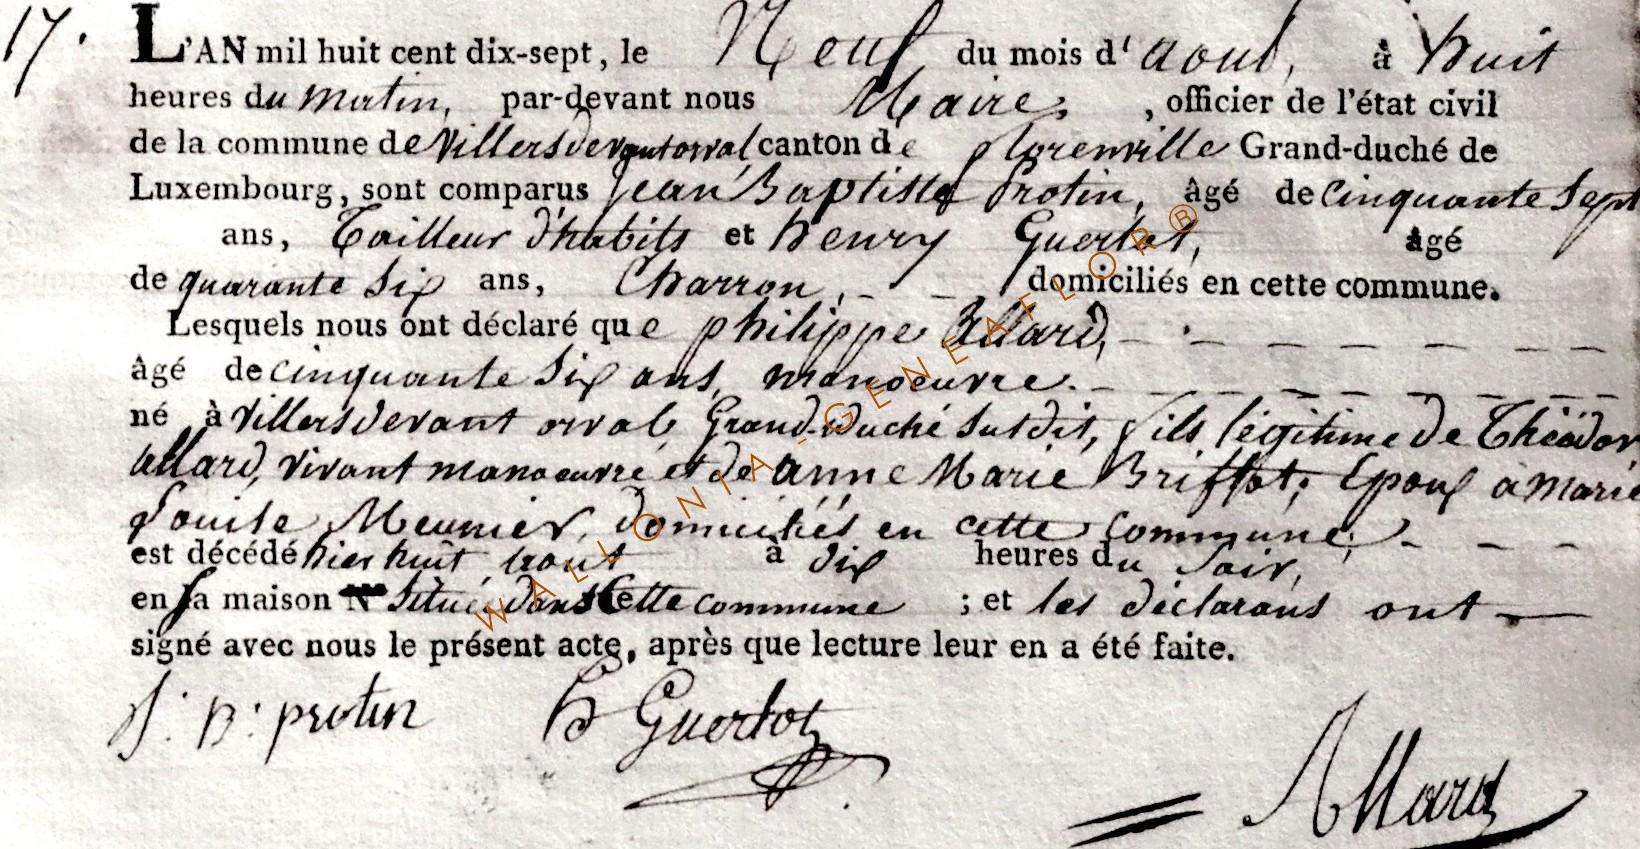 17. L'AN mil huit cent dix-sept, le Neuf du mois d'aout, à huit
heures du matin, par-devant nous Maire, , officier de l'état civil
de la commune de Villersdevantorval canton de florenville Grand-duché de
Luxembourg, sont comparus Jean Baptiste Protin, âgé de cinquante Sept
ans, Tailleur d'habits et henry Guertot, âgé
de quarante Six ans, Charron, domiciliés en cette commune.
Lesquels nous ont déclaré que philippe Allard,
âgé de cinquante Six ans, manoeuvre.
né à Villersdevant orval Grand-Duché Susdit, fils légitime de Théodor
allard, vivant manoeuvre et de anne Marie Briffot; Epoux a Marie
Louise Meunier, domiciliés en cette commune;
est décédé hier huit aout à dix heures du Soir,
en sa maison N° Située dans Cette commune ; et les déclarans ont
signé avec nous le présent acte, après que lecture leur en a été faite.
J: B: protin h Guertot
Allard
WALLONIA-GENEAFLOR®